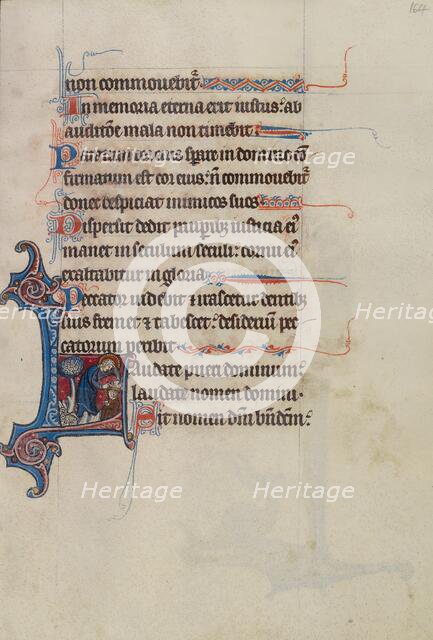 164
non commouebit᷑
In memoria eterna erit iustus: ab
auditōe mala non timebit᷑
Paratum cor eius sperare in domino: cō
firmatum est cor eius: ñ commouebit᷑
donec despiciat inimicos suos
Dispersit dedit paup̱ib᷒ iusticia ei᷒
manet in seculum seculi: cornu ei᷒
exaltabitur in gloria
Peccator uidebit & irascetur dentib᷒
suis fremet & tabescet: desiderium pec
catorum peribit
Laudate pueri dominum:
laudate nomen domini.
Sit nomen dn̄i bn̄dcm̄:
Heritage Heritage Heritage
Heritage Heritage Heritage